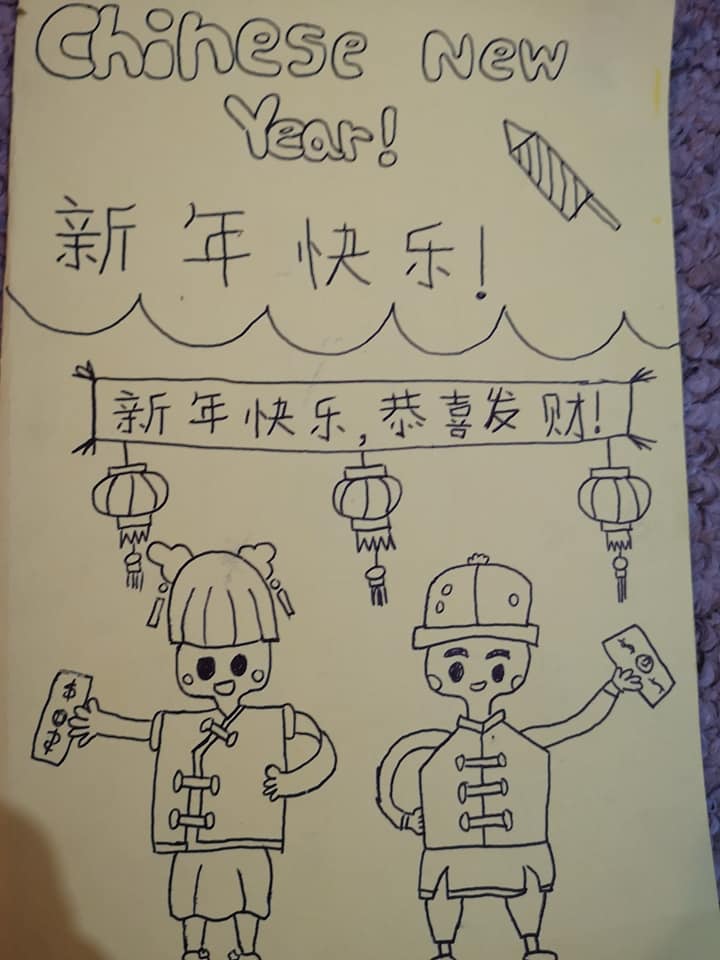 Chinese New
Year!
新年快乐!
新年快乐,恭喜发财!
$
$
$
$